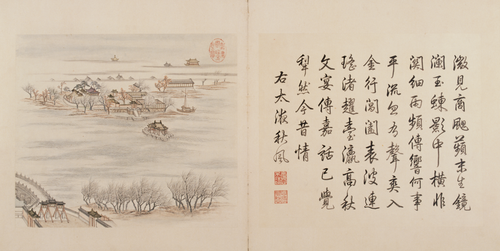 微見商飈蘋末生鏡
瀾玉蝀影中橫非
關細雨頻傳響何事
平流忽有聲爽入
金行閶闔表波連
瑤渚趯臺瀛高秋
文宴傳嘉話已覺
犁然今昔情
右太液秋風